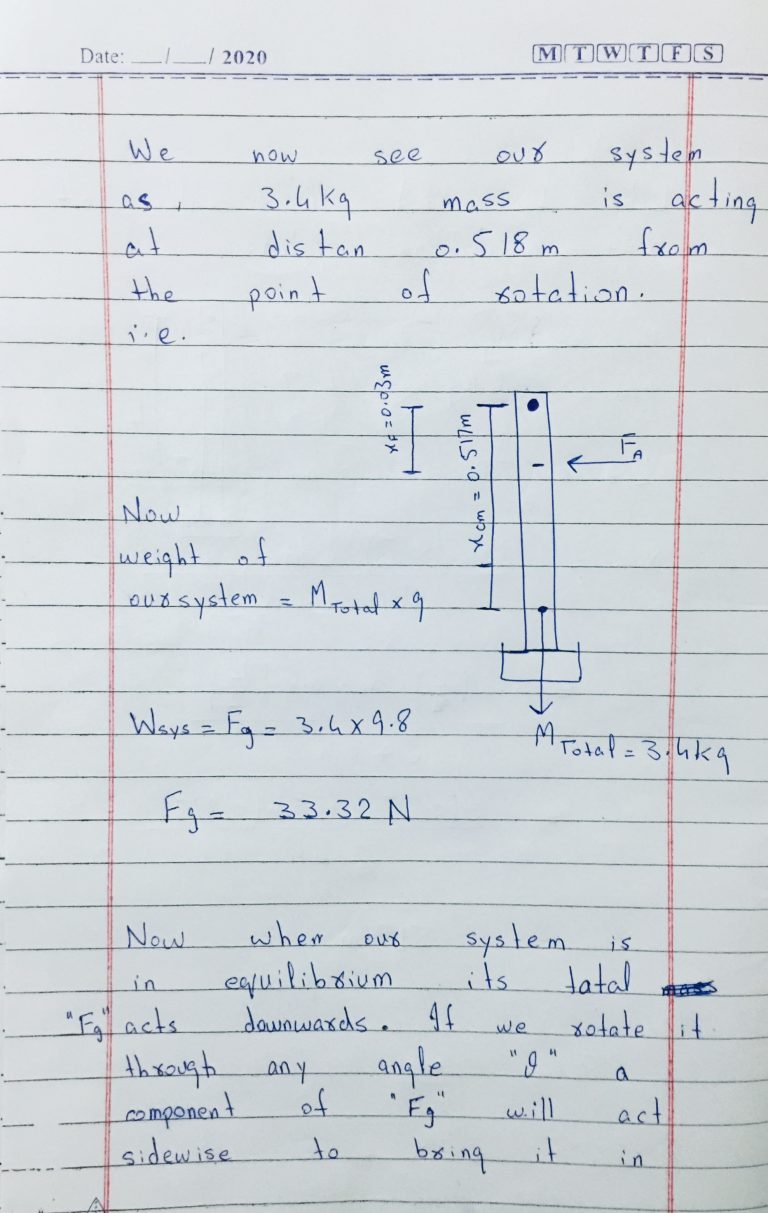 Date: __/__/ 2020
M T W T F S
We now see our system
as, 3.4kg mass is acting
at distan 0.518 m from
the point of rotation.
i.e.
xF = 0.03m
xcm = 0.517m
FA
Now
weight of
our system = MTotal x g
Wsys = Fg = 3.4 x 9.8
MTotal = 3.4kg
Fg = 33.32 N
Now when our system is
in equilibrium its tatal
"Fg" acts downwards. If we rotate it
through any angle "θ" a
component of "Fg" will act
sidewise to bring it in